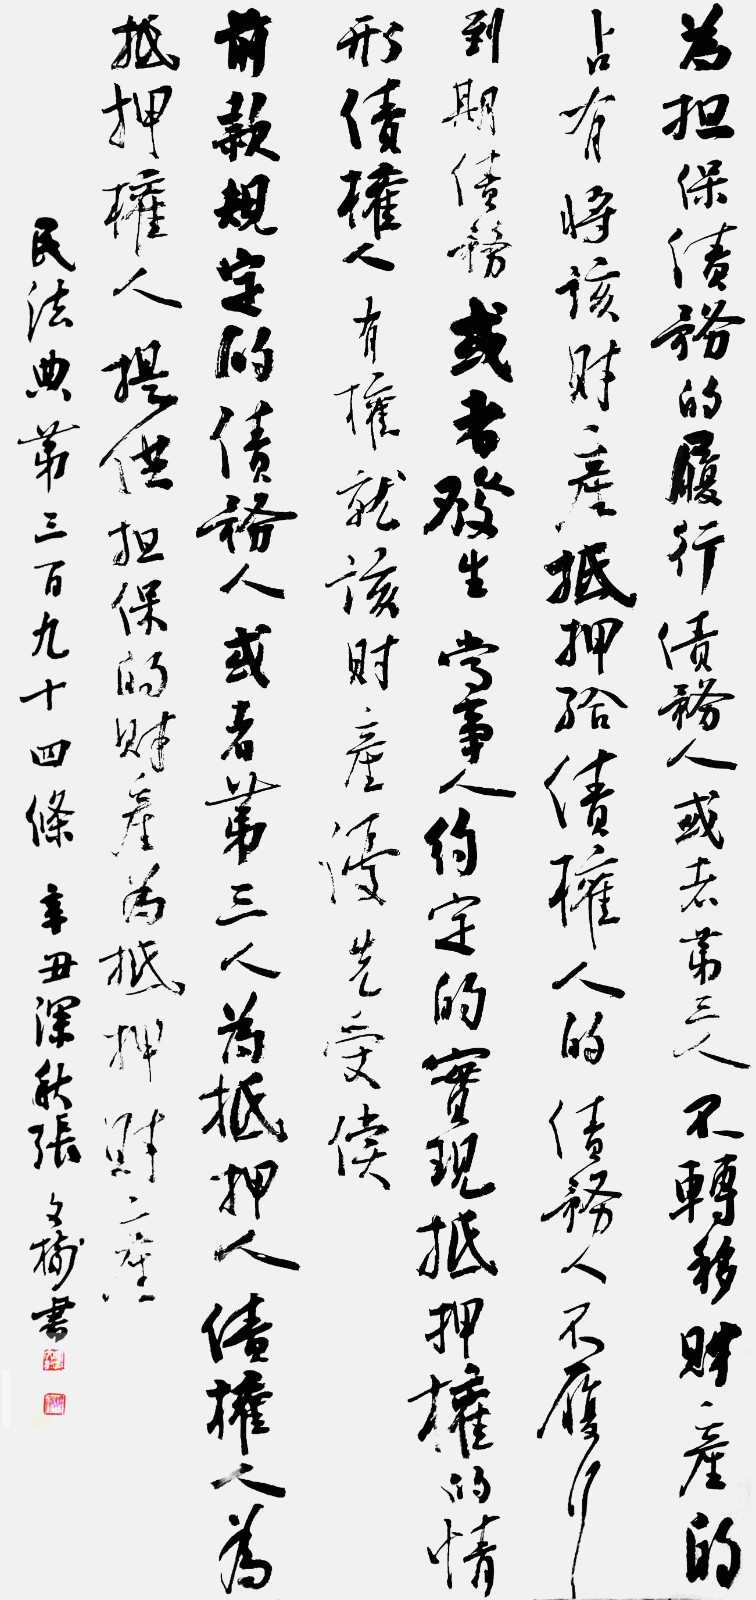 為担保債務的履行債務人或者第三人不轉移財產的
占有將該財產抵押給債權人的債務人不履行
到期債務或者發生當事人約定的實現抵押權的情
形債權人有權就該財產優先受償
前款規定的債務人或者第三人為抵押人債權人為
抵押權人提供担保的財產為抵押財產
民法典第三百九十四條 辛丑深秋張文樹書